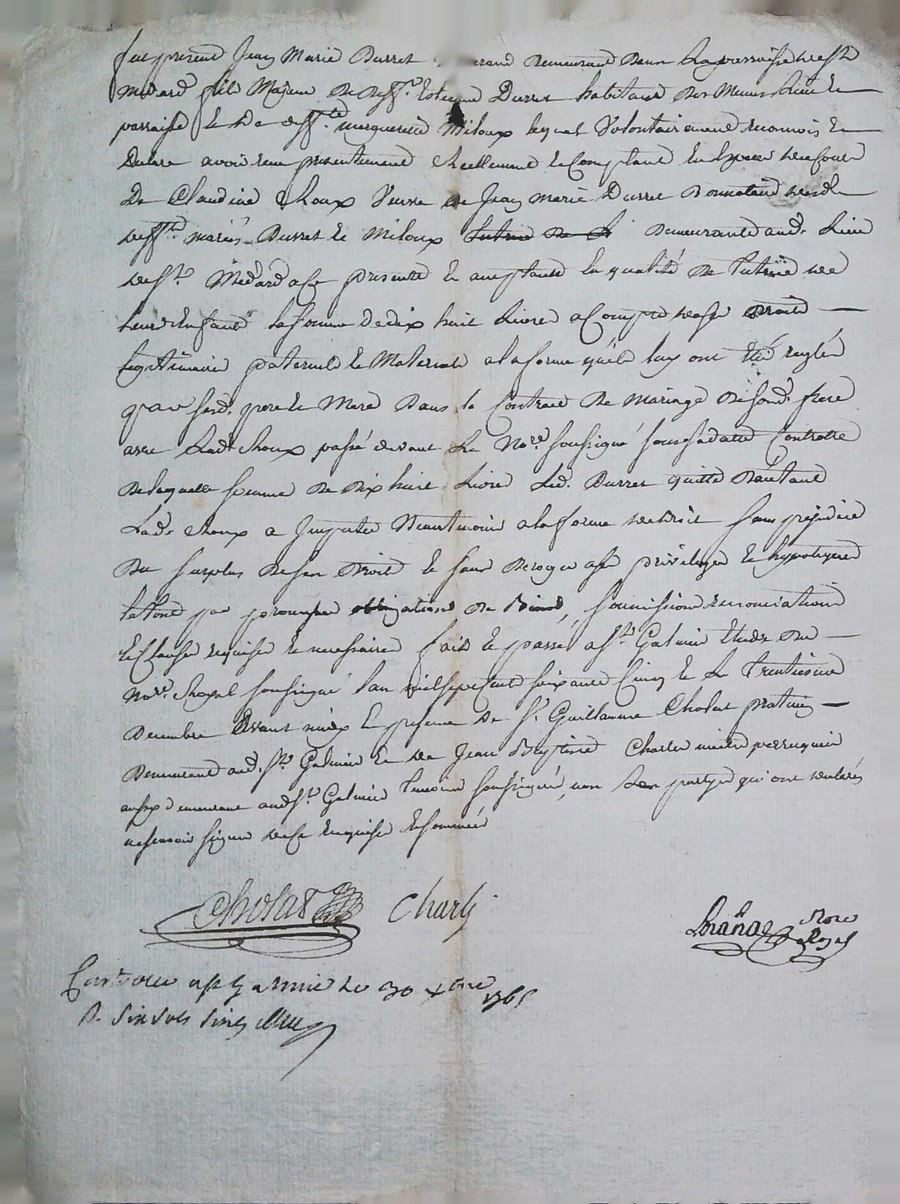 fut present Jean Marie Durret demeurant dans la parroisse de St
Medard fils Majeur de deff.t Estienne Durret habitant des memes Lieu et
parroisse et de deff.te marguerite Miloux lequel Volontairement reconnois et
Declare avoir reçu presentement reellement et Comptant en Especes de Cour
De Claudine Choux Veuve de Jean marie Durret
deff.ts mariés Durret et Miloux tutrice de Demeurante aud. Lieu
de St. Médard ase presente et acceptante en qualité de tutrice de
leurs Enfants la somme de dix huit Livres a Compte de ses Droits
Legitimaires paternels et Maternels a la forme qu'ils luy ont été reglés
par sesd. pere et Mere Dans le Contract De Mariage de sond. frere
avec Lad. Choux passé devant Le No.re soussigné sous sa datte Controllé
De laquelle somme de dix huit Livres Led. Durret quitte D'autant
Lad. Choux a Imputer Neantmoins a la forme de droit sans prejudice
Du surplus de ses Droits et sans Deroger a ses privileges et hypoteques
Le tout par promesses obligations de Biens, soumissions renonciations
et Clauses requises et necessaires fait et passé a St. Galmier Etude du
No.re Royal soussigné L'an mil sept cent soixante Cinq et Le trentieme
Decembre avant midy En presence de S.r Guillaume Cholat praticien
Demeurant aud. St. Galmier et de Jean Baptiste Charles maitre perruquier
aussy demeurant aud. St. Galmier temoins soussignés, non Les partyes qui ont declaré
ne sçavoir signer de ce Enquises et sommées
Cholat Charle
No.re Royal
Con.lé a St Galmier Le 30 x.bre 1765
R. six sols six